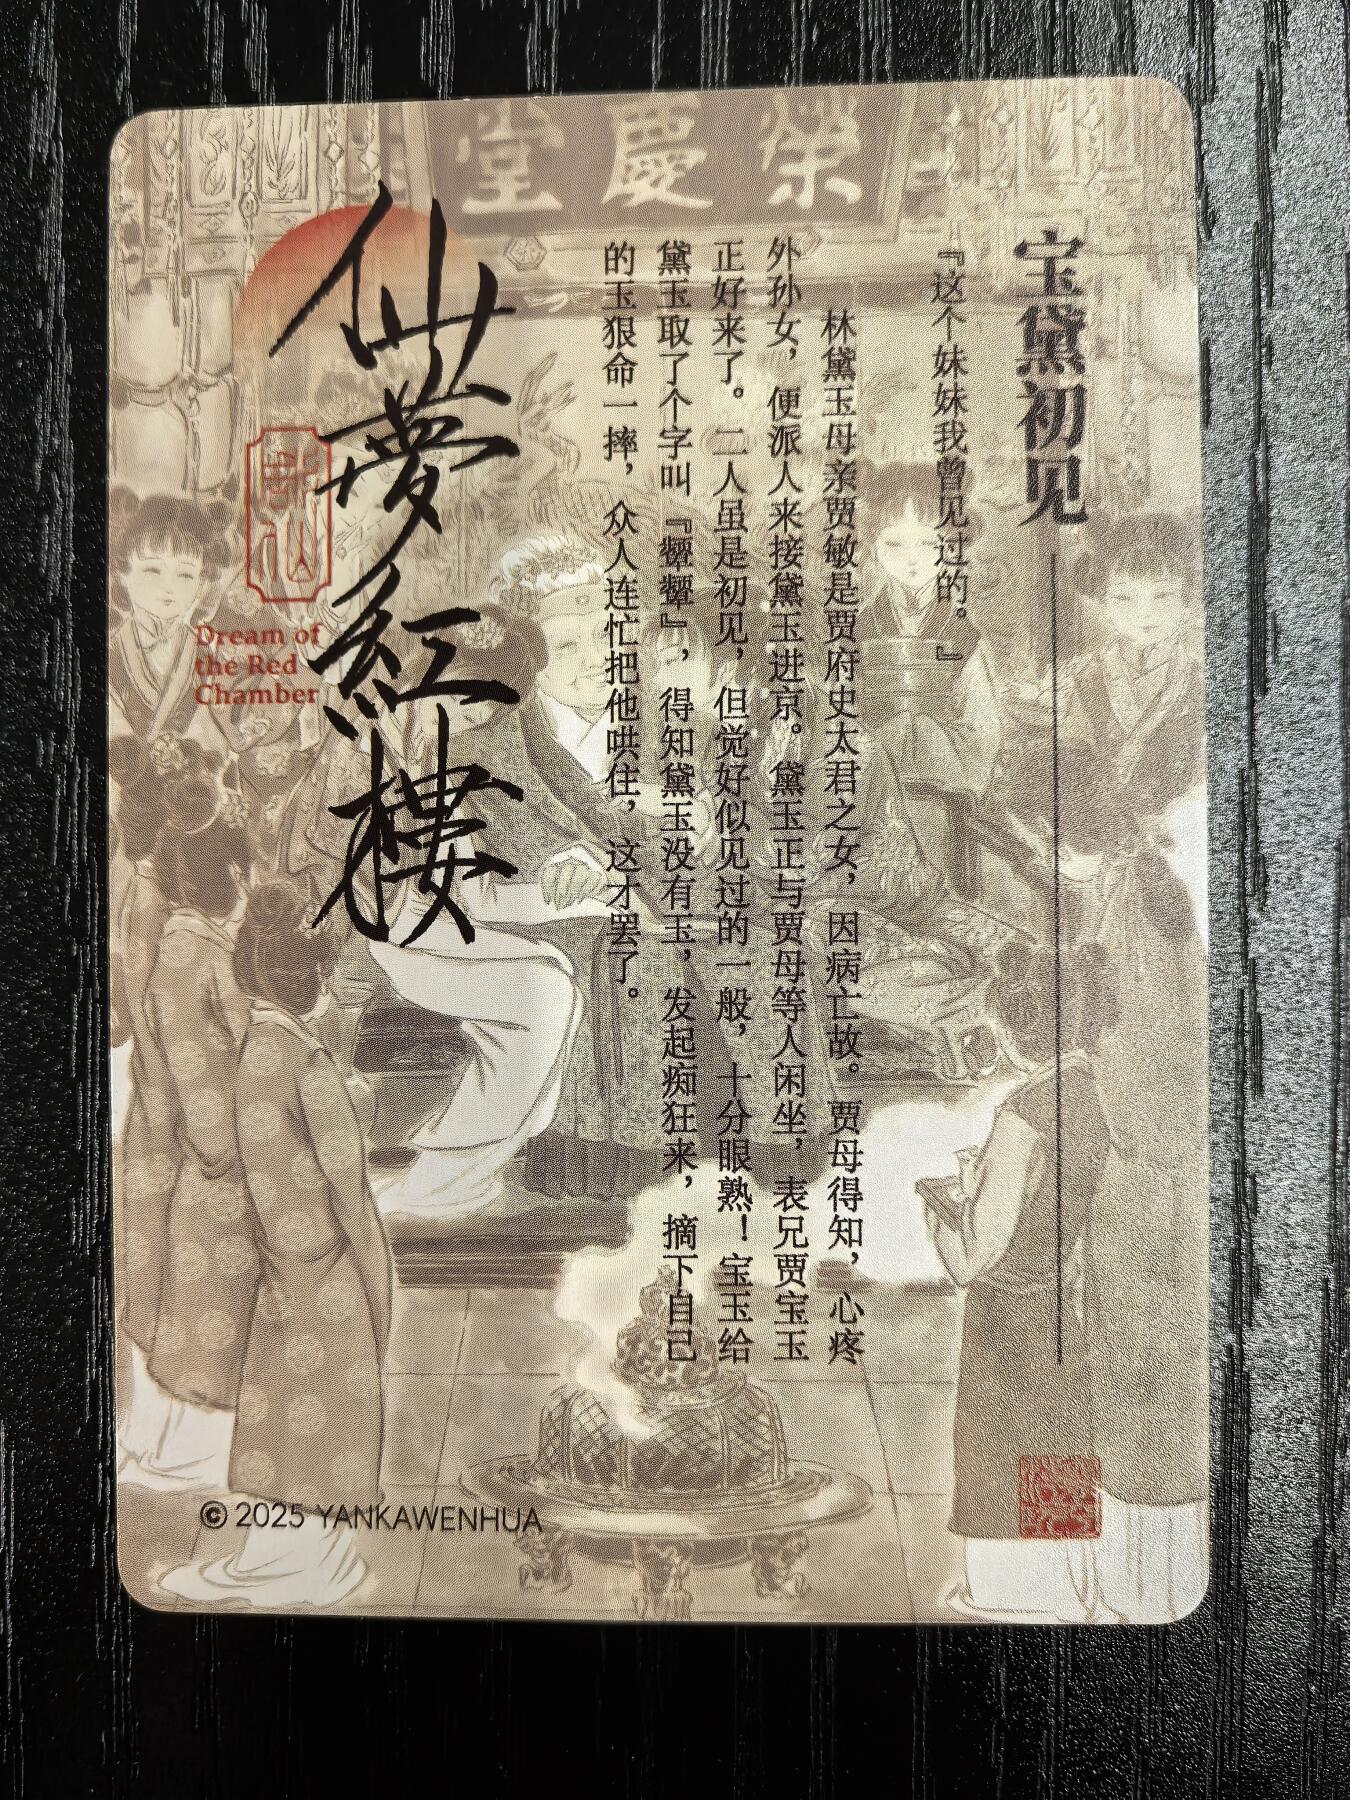 榮慶堂
宝黛初见
『这个妹妹我曾见过的。』
林黛玉母亲贾敏是贾府史太君之女，因病亡故。贾母得知，心疼
外孙女，便派人来接黛玉进京。黛玉正与贾母等人闲坐，表兄贾宝玉
正好来了。二人虽是初见，但觉好似见过的一般，十分眼熟！宝玉给
黛玉取了个字叫『颦颦』，得知黛玉没有玉，发起痴狂来，摘下自己
的玉狠命一摔，众人连忙把他哄住，这才罢了。
仙夢紅樓
Dream of
the Red
Chamber
© 2025 YANKAWENHUA